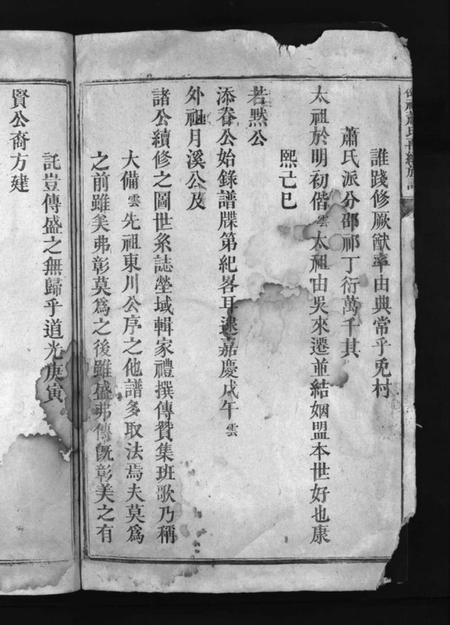 誰踐修厥猷率由典常乎兎村
蕭氏派分邵祁丁衍萬千其
太祖於明初偕雲太祖由吳來遷並結姻盟本世好也康
熙己巳
若默公
添眷公始錄譜牒第紀畧耳逮嘉慶戊午雲
外祖月溪公及
諸公續修之圖世系誌塋域輯家禮撰傳贊集班歌乃稱
大備雲先祖東川公序之他譜多取法焉夫莫為
之前雖美弗彰莫為之後雖盛弗傳旣彰美之有
託豈傳盛之無歸乎道光庚寅
賢公裔方建